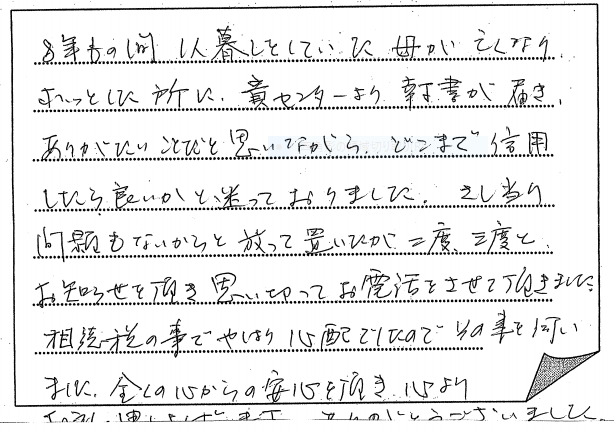 8年もの間 1人暮しをしていた 母が 亡くなり
ホッとした所に、貴センターより 封書が 届き、
ありがたいことだと思いながら、どこまで信用
したら良いかと迷っておりました。 さし当り
問題もないからと 放って置いたが 二度、三度と
お知らせを頂き 思い切ってお電話をさせて頂きました
相続税の事でやはり心配でしたので その事を伺い
ました。全くの心からの安心を頂き 心より
お礼 申し上げます。 ありがとうございました。